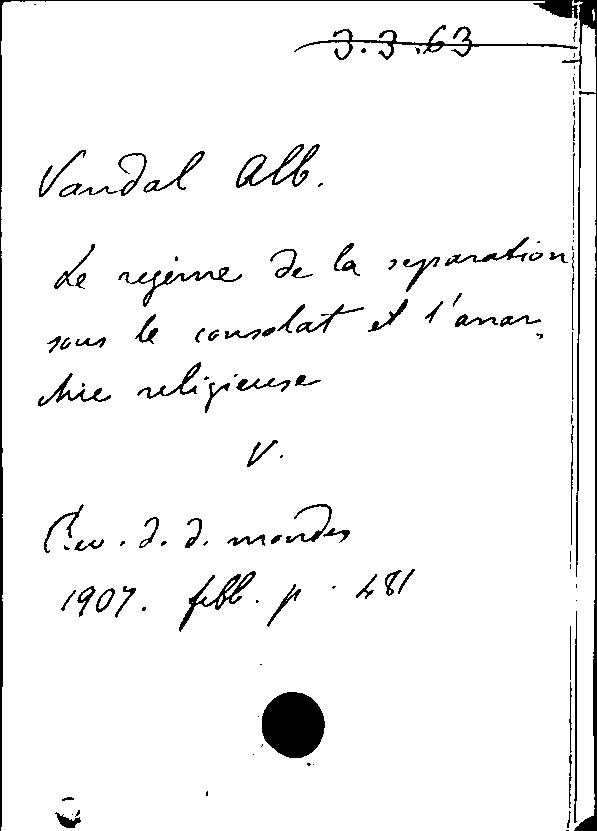 3.3.63
Vandal Alb.
Le regime de la separation
sous le consolat et l'anar-
chie religieuse
V.
Rev. d. d. mondes
1907. febb. p. 481